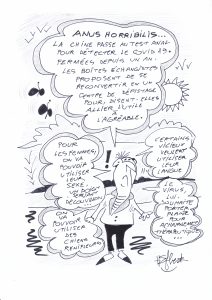 ANUS HORRIBILIS...
LA CHINE PASSE AU TEST ANAL
POUR DÉTECTER LE COVID 19.
FERMÉES DEPUIS UN AN.
LES BOÎTES ÉCHANGISTES
PROPOSENT DE SE
RECONVERTIR EN UN
CENTRE DE DÉPISTAGE
POUR, DISENT-ELLES
ALLIER L'UTILE
À
L'AGRÉABLE.
POUR
LES FEMMES,
ON VA
POUVOIR
UTILISER
LEUR
SEXE.
ON VA
POUVOIR
UTILISER
DES
CHIENS
RENIFLEURS
CERTAINS
VICIEUX
VEULENT
UTILISER
LEUR
LANGUE
LE VIRUS,
LUI,
SOUHAITE
PORTER
PLAINTE
POUR
ACHARNEMENT
THÉRAPEUTIQUE...